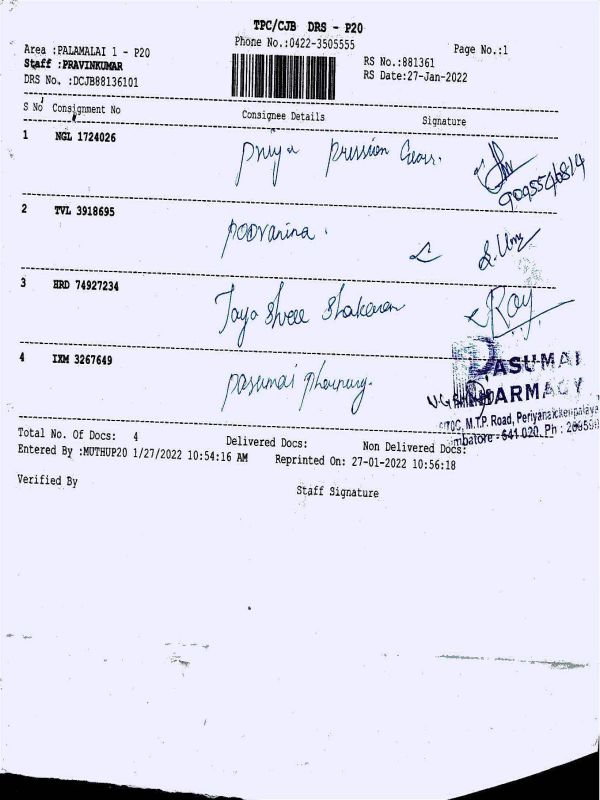 TPC/CJB DRS - P20
Phone No.:0422-3505555
Page No.:1
Area :PALAMALAI 1 - P20
Staff :PRAVINKUMAR
DRS No. :DCJB88136101
RS No.:881361
RS Date:27-Jan-2022
S No Consignment No Consignee Details Signature
1 NGL 1724026 priya pression Gears.
9095546814
2 TVL 3918695 poovarina.
3 HRD 74927234 Jaya Shree
Roy
4 IXM 3267649 pasumai
PASUMAI
PHARMACY
M.T.P. Road,
641 020. Ph :
Total No. Of Docs: 4 Delivered Docs: Non Delivered Docs:
Entered By :MUTHUP20 1/27/2022 10:54:16 AM Reprinted On: 27-01-2022 10:56:18
Verified By Staff Signature